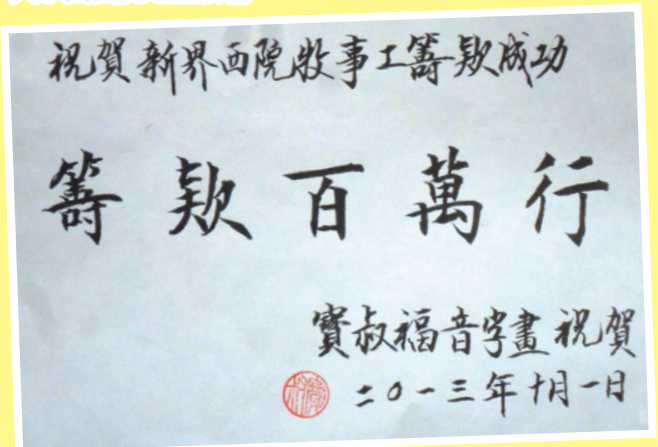 祝賀新界西院牧事工籌款成功
籌款百萬行
寶叔福音字畫祝賀
二〇一三年十月一日